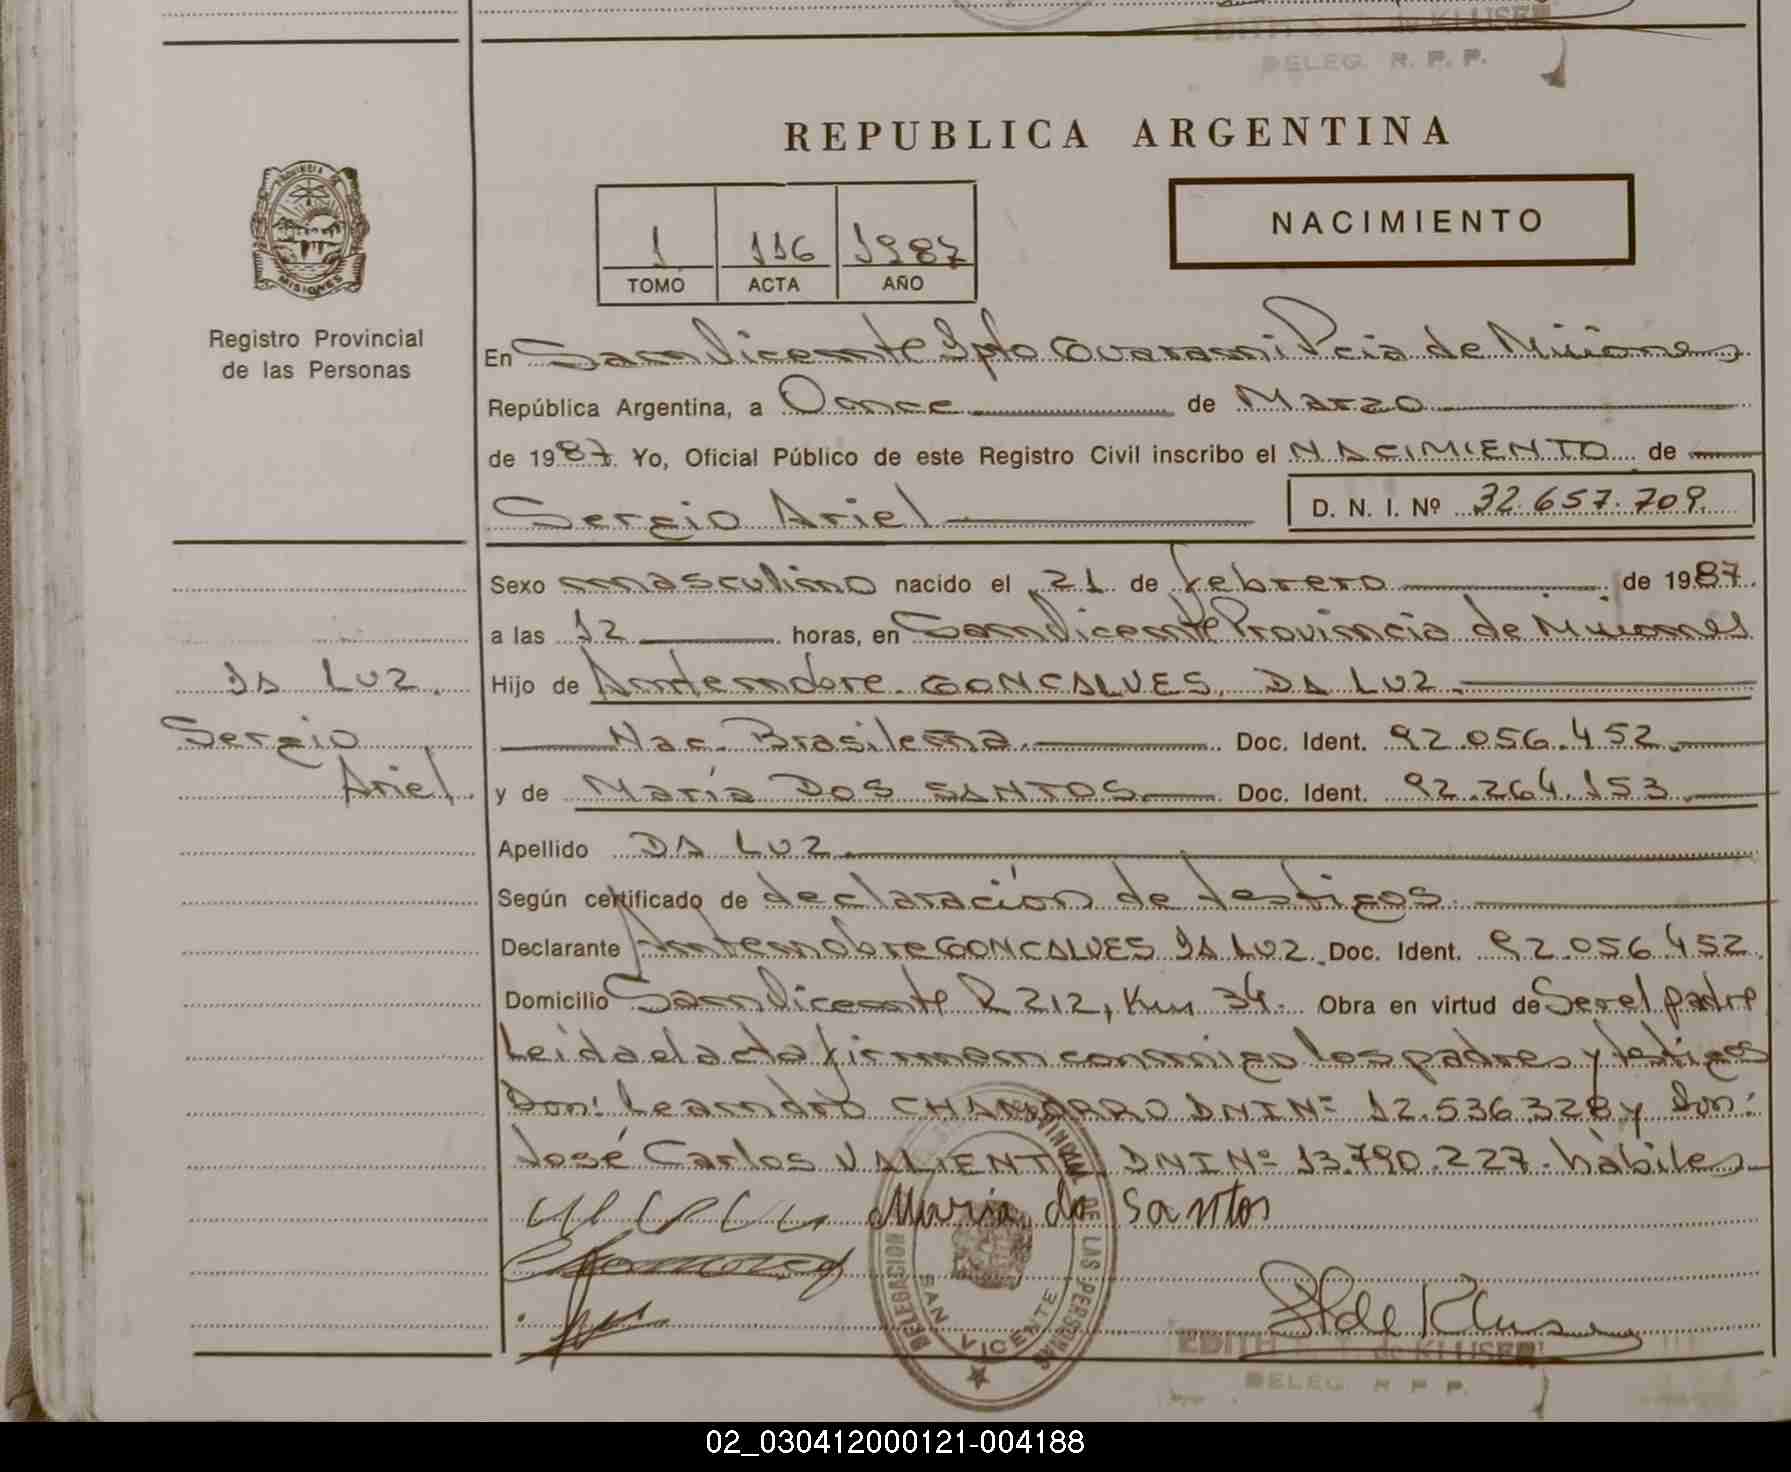 EDITH S. T. de KLUSER
DELEG. R. P. P.
REPUBLICA ARGENTINA
PROVINCIA DE
MISIONES
Registro Provincial
de las Personas
1 116 1987
TOMO ACTA AÑO
NACIMIENTO
En San Vicente Dpto Guarani Pcia de Misiones
República Argentina, a Once de Marzo
de 1987. Yo, Oficial Público de este Registro Civil inscribo el NACIMIENTO de
Sergio Ariel D. N. I. Nº 32.657.709.
Sexo masculino nacido el 21 de febrero de 1987.
a las 12 horas, en San Vicente Provincia de Misiones
DA LUZ.
Sergio
Ariel.
Hijo de Antenobre GONCALVES DA LUZ.
Nac. Brasileña. Doc. Ident. 92.056.452.
y de María DOS SANTOS Doc. Ident. 92.264.153.
Apellido DA LUZ.
Según certificado de declaración de testigos.
Declarante Antenobre GONCALVES DA LUZ. Doc. Ident. 92.056.452.
Domicilio San Vicente R 212, Km 34. Obra en virtud de Ser el padre
Leida el acta firman conmigo los padres y testigos
Don: Leandro CHAMORRO DNI Nº 12.536.328 y Don:
José Carlos VALIENTE DNI Nº 13.790.227. hábiles
Maria do Santos
DELEGACION PROVINCIAL DE LAS PERSONAS
SAN VICENTE
EDITH S. T. de KLUSER
DELEG. R P P.
02_030412000121-004188